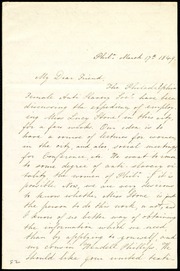 Phila. March 17th 1849
My Dear Friend,
The Philadelphia
Female Anti Slavery Soc. have been
discussing the expediency of employ
ing Miss Lucy Stone in this city
for a few weeks. Our idea is to
have a course of lectures for women
in the city, and also social meetings
for Conference, etc. We want to come
to some degree of anti slavery
the women of Phila. if it is
possible. Now, we are very desirous
to know whether Miss Stone is just
the person to do this work, & not, and
I know of no better way of obtaining
the information which we need
than by applying to yourself and
my cousin Wendell Phillips. We
should like your united testi
52